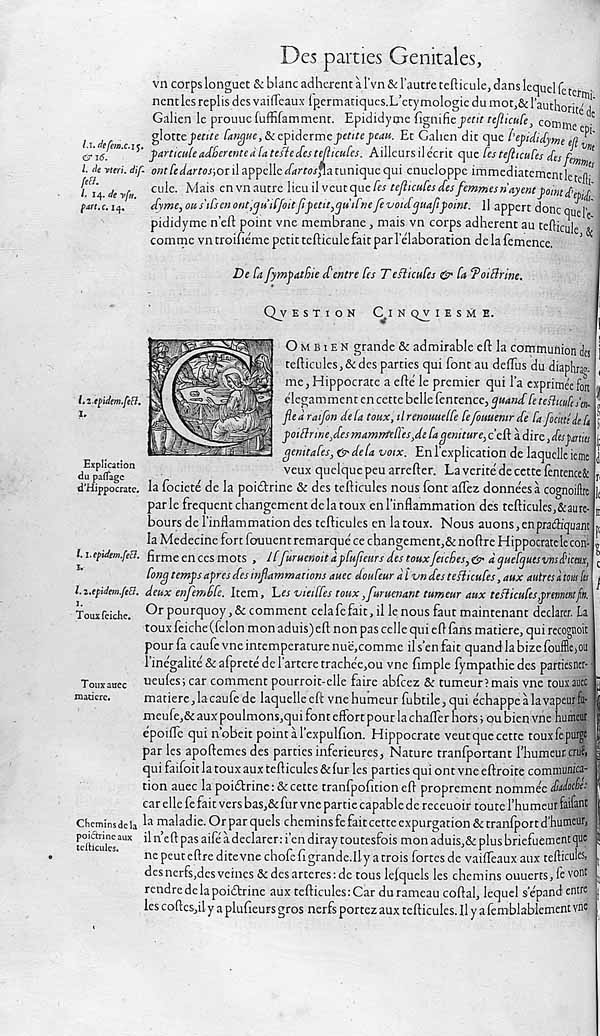 Des parties Genitales,
vn corps longuet & blanc adherent à l'vn & l'autre testicule, dans lequel se termi-
nent les replis des vaisseaux spermatiques. L'etymologie du mot, & l'authorité de
Galien le prouue suffisamment. Epididyme signifie petit testicule, comme epi-
glotte petite langue, & epiderme petite peau. Et Galien dit que l'epididyme est vne
l.1. de sem.c.15.
& 16.
particule adherente à la teste des testicules. Ailleurs il écrit que les testicules des femmes
l. de vteri. dis-
sect.
ont le dartos; or il appelle dartos, la tunique qui enueloppe immediatement le testi-
cule. Mais en vn autre lieu il veut que les testicules des femmes n'ayent point d'epidi-
l. 14. de vsu.
part. c. 14.
dyme, ou s'ils en ont, qu'il soit si petit, qu'il ne se void quasi point. Il appert donc que l'e-
pididyme n'est point vne membrane, mais vn corps adherent au testicule, &
comme vn troisiéme petit testicule fait par l'élaboration de la semence.
De la sympathie d'entre les Testicules & la Poictrine.
QVESTION CINQVIESME.
COMBIEN grande & admirable est la communion des
testicules, & des parties qui sont au dessus du diaphrag-
me, Hippocrate a esté le premier qui l'a exprimée fort
l.2. epidem.sect.
1.
élegamment en cette belle sentence, quand le testicule s'en-
fle à raison de la toux, il renouuelle le souuenir de la societé de la
poictrine, des mammelles, de la geniture, c'est à dire, des parties
genitales, & de la voix. En l'explication de laquelle ie me
Explication
du passage
d'Hippocrate.
veux quelque peu arrester. La verité de cette sentence &
la societé de la poictrine & des testicules nous sont assez données à cognoistre
par le frequent changement de la toux en l'inflammation des testicules, & au re-
bours de l'inflammation des testicules en la toux. Nous auons, en practiquant
la Medecine fort souuent remarqué ce changement, & nostre Hippocrate le con-
l. 1. epidem.sect.
1.
firme en ces mots, Il suruenoit à plusieurs des toux seiches, & à quelques vns d'iceux,
long temps apres des inflammations auec douleur à l'vn des testicules, aux autres à tous les
l.2. epidem.sect.
1.
deux ensemble. Item, Les vieilles toux, suruenant tumeur aux testicules, prennent fin.
Toux seiche.
Or pourquoy, & comment cela se fait, il le nous faut maintenant declarer. La
toux seiche (selon mon aduis) est non pas celle qui est sans matiere, qui recognoit
pour sa cause vne intemperature nuë, comme il s'en fait quand la bize souffle, ou
l'inégalité & aspreté de l'artere trachée, ou vne simple sympathie des parties ner-
Toux auec
matiere.
ueuses; car comment pourroit-elle faire abscez & tumeur? mais vne toux auec
matiere, la cause de laquelle est vne humeur subtile, qui échappe à la vapeur fu-
meuse, & aux poulmons, qui font effort pour la chasser hors; ou bien vne humeur
époisse qui n'obeit point à l'expulsion. Hippocrate veut que cette toux se purge
par les apostemes des parties inferieures, Nature transportant l'humeur cruë,
qui faisoit la toux aux testicules & sur les parties qui ont vne estroite communica-
tion auec la poictrine: & cette transposition est proprement nommée
car elle se fait vers bas, & sur vne partie capable de receuoir toute l'humeur faisant
Chemins de la
poictrine aux
testicules.
la maladie. Or par quels chemins se fait cette expurgation & transport d'humeur,
il n'est pas aisé à declarer: i'en diray toutesfois mon aduis, & plus briefuement que
ne peut estre dite vne chose si grande. Il y a trois sortes de vaisseaux aux testicules,
des nerfs, des veines & des arteres: de tous lesquels les chemins ouuerts, se vont
rendre de la poictrine aux testicules: Car du rameau costal, lequel s'épand entre
les costes, il y a plusieurs gros nerfs portez aux testicules. Il y a semblablement vne